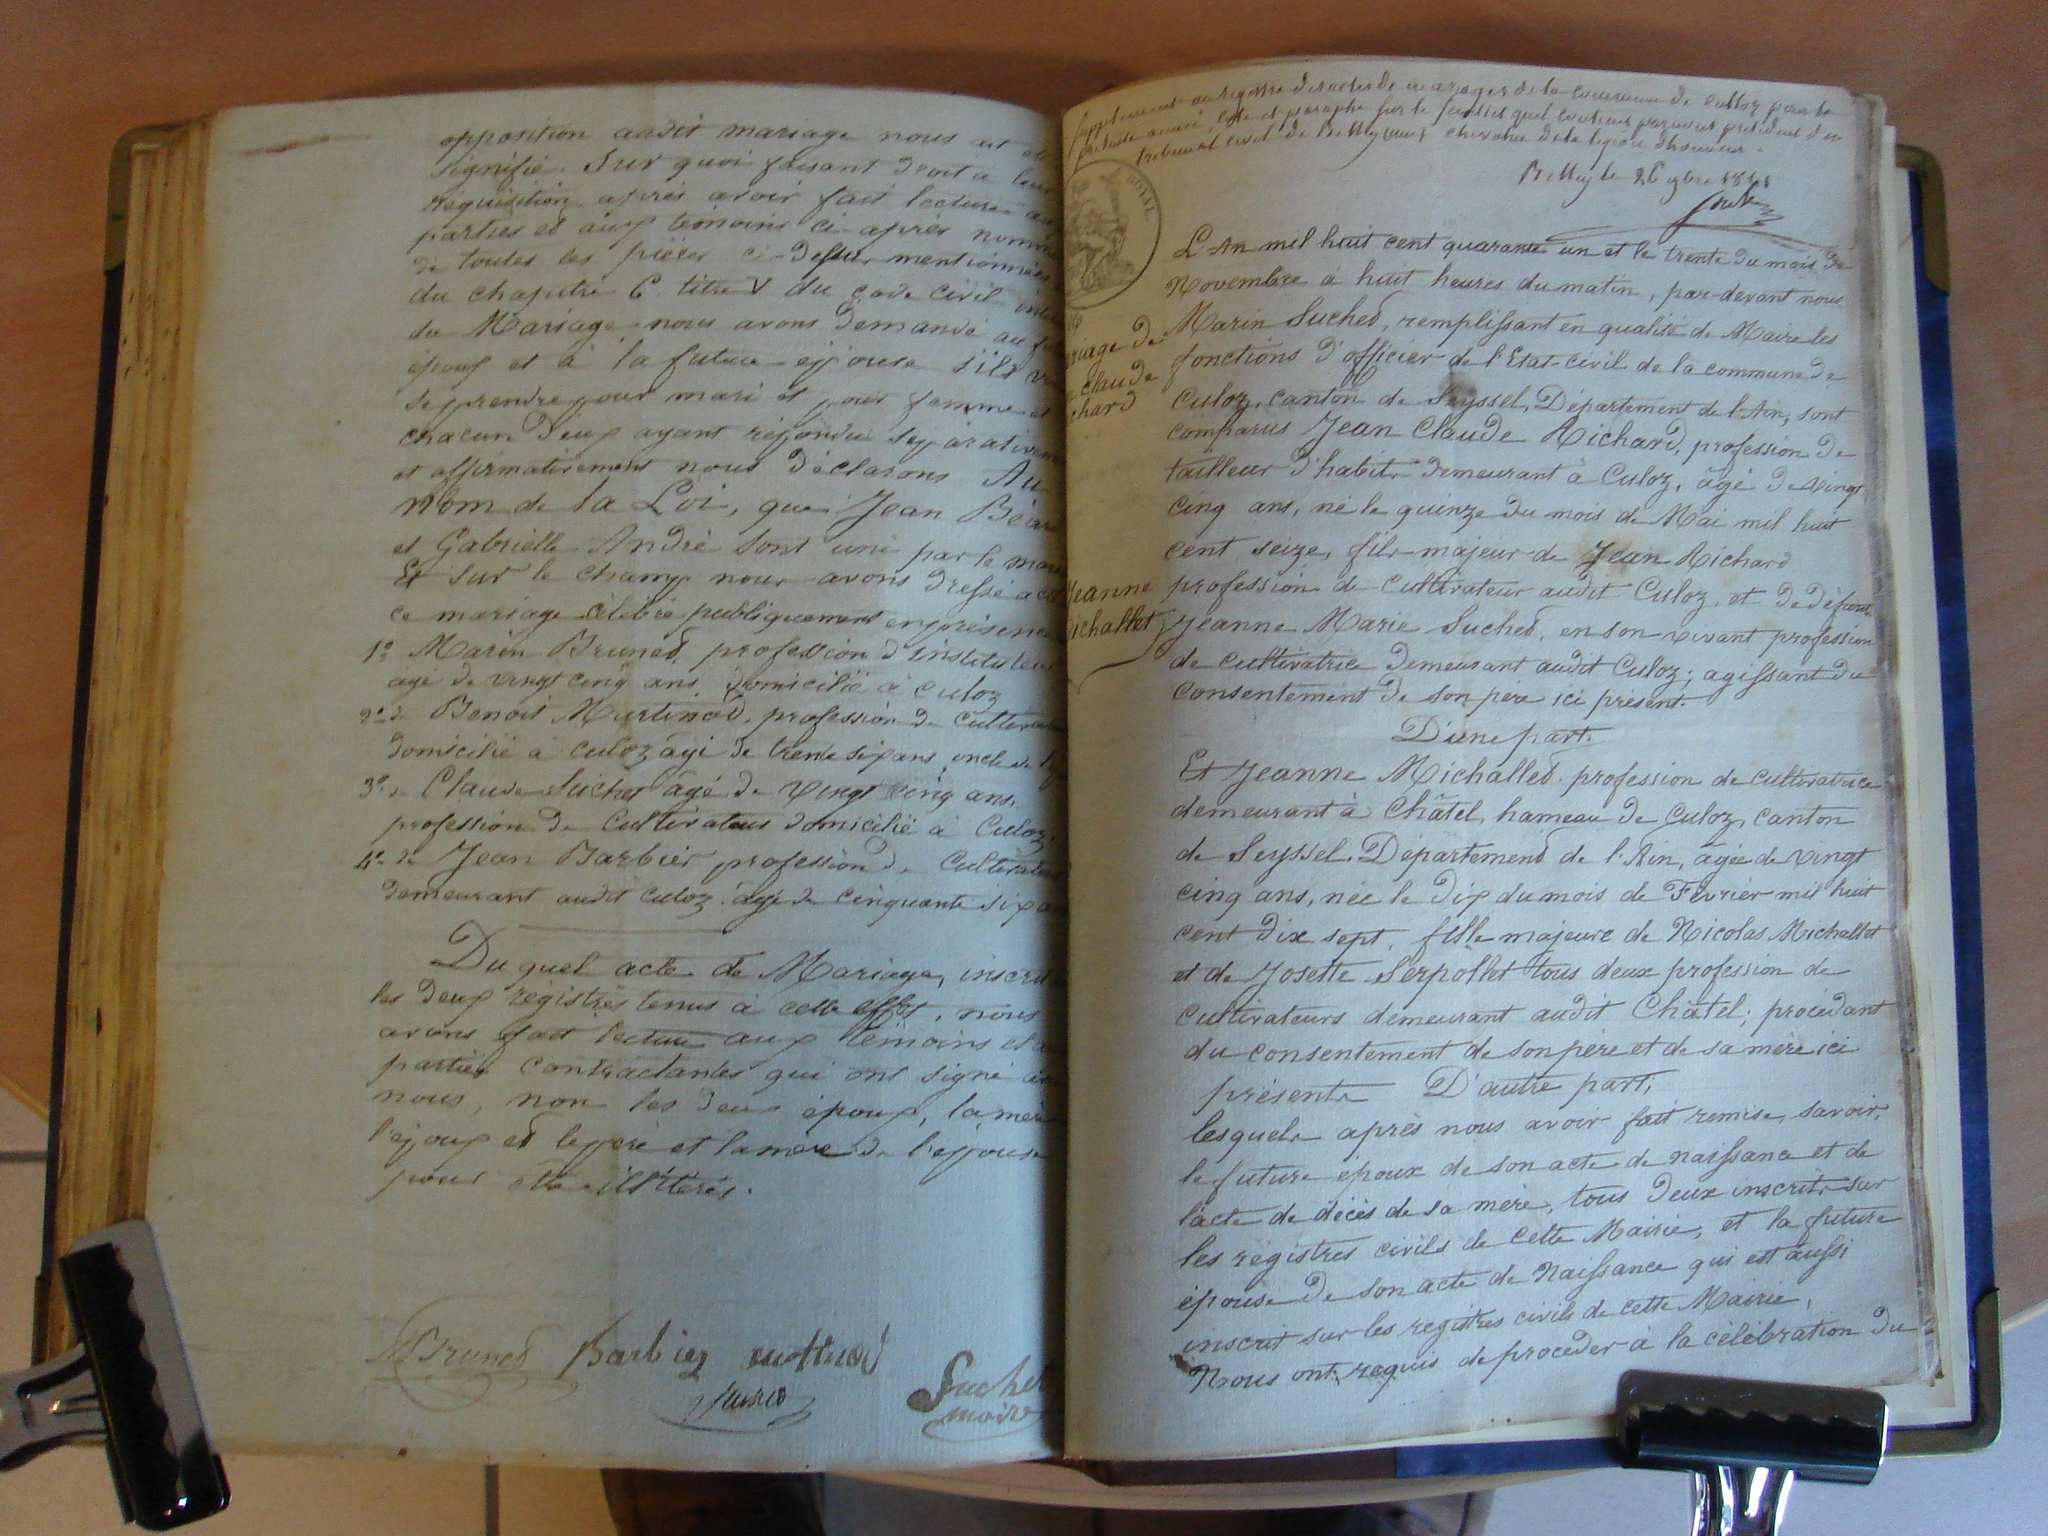 opposition audit mariage nous ait été
signifié. Sur quoi faisant droit à leur
réquisition, après avoir fait lecture aux
parties et aux témoins ci-après nommés
de toutes les pièces ci-dessus mentionnées
du chapitre 6. titre V du code civil
du Mariage, nous avons demandé au
époux et à la future épouse s'ils
se prendre pour mari et pour femme et
chacun d'eux ayant répondu séparativement
et affirmativement nous déclarons Au
Nom de la Loi, que Jean
et Gabrielle André sont uni par le
Et sur le champ nous avons dressé acte
ce mariage célébré publiquement en présence
1º Marin Brunet, profession d'instituteur
âgé de vingt cinq ans, domicilié à Culoz
2º de Benoit Martinod, profession de cultivateur
domicilié à Culoz âgé de trente six ans, oncle de
3º de Claude Suchet âgé de vingt cinq ans,
profession de Cultivateur domicilié à Culoz.
4º de Jean Barbier profession de Cultivateur
demeurant audit Culoz. âgé de cinquante six
Du quel acte de Mariage, inscrit
les deux régistres tenus à cette effet, nous
avons fait lecture aux témoins et
parties contractantes qui ont signé
nous, non les deux époux, la mère
l'époux et le père et la mère de l'épouse
pour être illitérés.
MBrunet Barbier
Suchet
maire
Supplément au registre des actes de mariages de la commune de Culoz pour la
présente année, coté et paraphé sur le feuillet qu'il contient par nous président du
tribunal civil de Belley, chevalier de la légion d'honneur.
Belley le 26 9bre 1841
ROYAL
L'An mil huit cent quarante un et le trente du mois de
Novembre à huit heures du matin, par-devant nous
Marin Suched, remplissant en qualité de Maire les
fonctions d'officier de l'Etat-civil de la commune de
Culoz, canton de Seyssel, Département de l'Ain, sont
comparus Jean Claude Richard, profession de
tailleur d'habits demeurant à Culoz, âgé de vingt
cinq ans, né le quinze du mois de Mai mil huit
cent seize, fils majeur de Jean Richard
profession de Cultivateur audit Culoz, et de défunte
Jeanne Marie Suched, en son vivant profession
de cultivatrice demeurant audit Culoz; agissant du
consentement de son père ici présent.
D'une part.
Et Jeanne Michalled profession de cultivatrice
demeurant à Châtel, hameau de Culoz, canton
de Seyssel, Département de l'Ain, âgée de vingt
cinq ans, née le dix du mois de Février mil huit
cent dix sept, fille majeure de Nicolas Michallet
et de Josette Serpollet tous deux profession de
cultivateurs demeurant audit Châtel; procédant
du consentement de son père et de sa mère ici
présents D'autre part,
lesquels après nous avoir fait remise, savoir,
le future époux de son acte de naissance et de
l'acte de décès de sa mère, tous deux inscrits sur
les régistres civils de cette Mairie, et la future
épouse de son acte de Naissance qui est aussi
inscrit sur les registres civils de cette Mairie,
Nous ont requis de procéder à la célébration du
riage de
claude
chard
Jeanne
ichallet